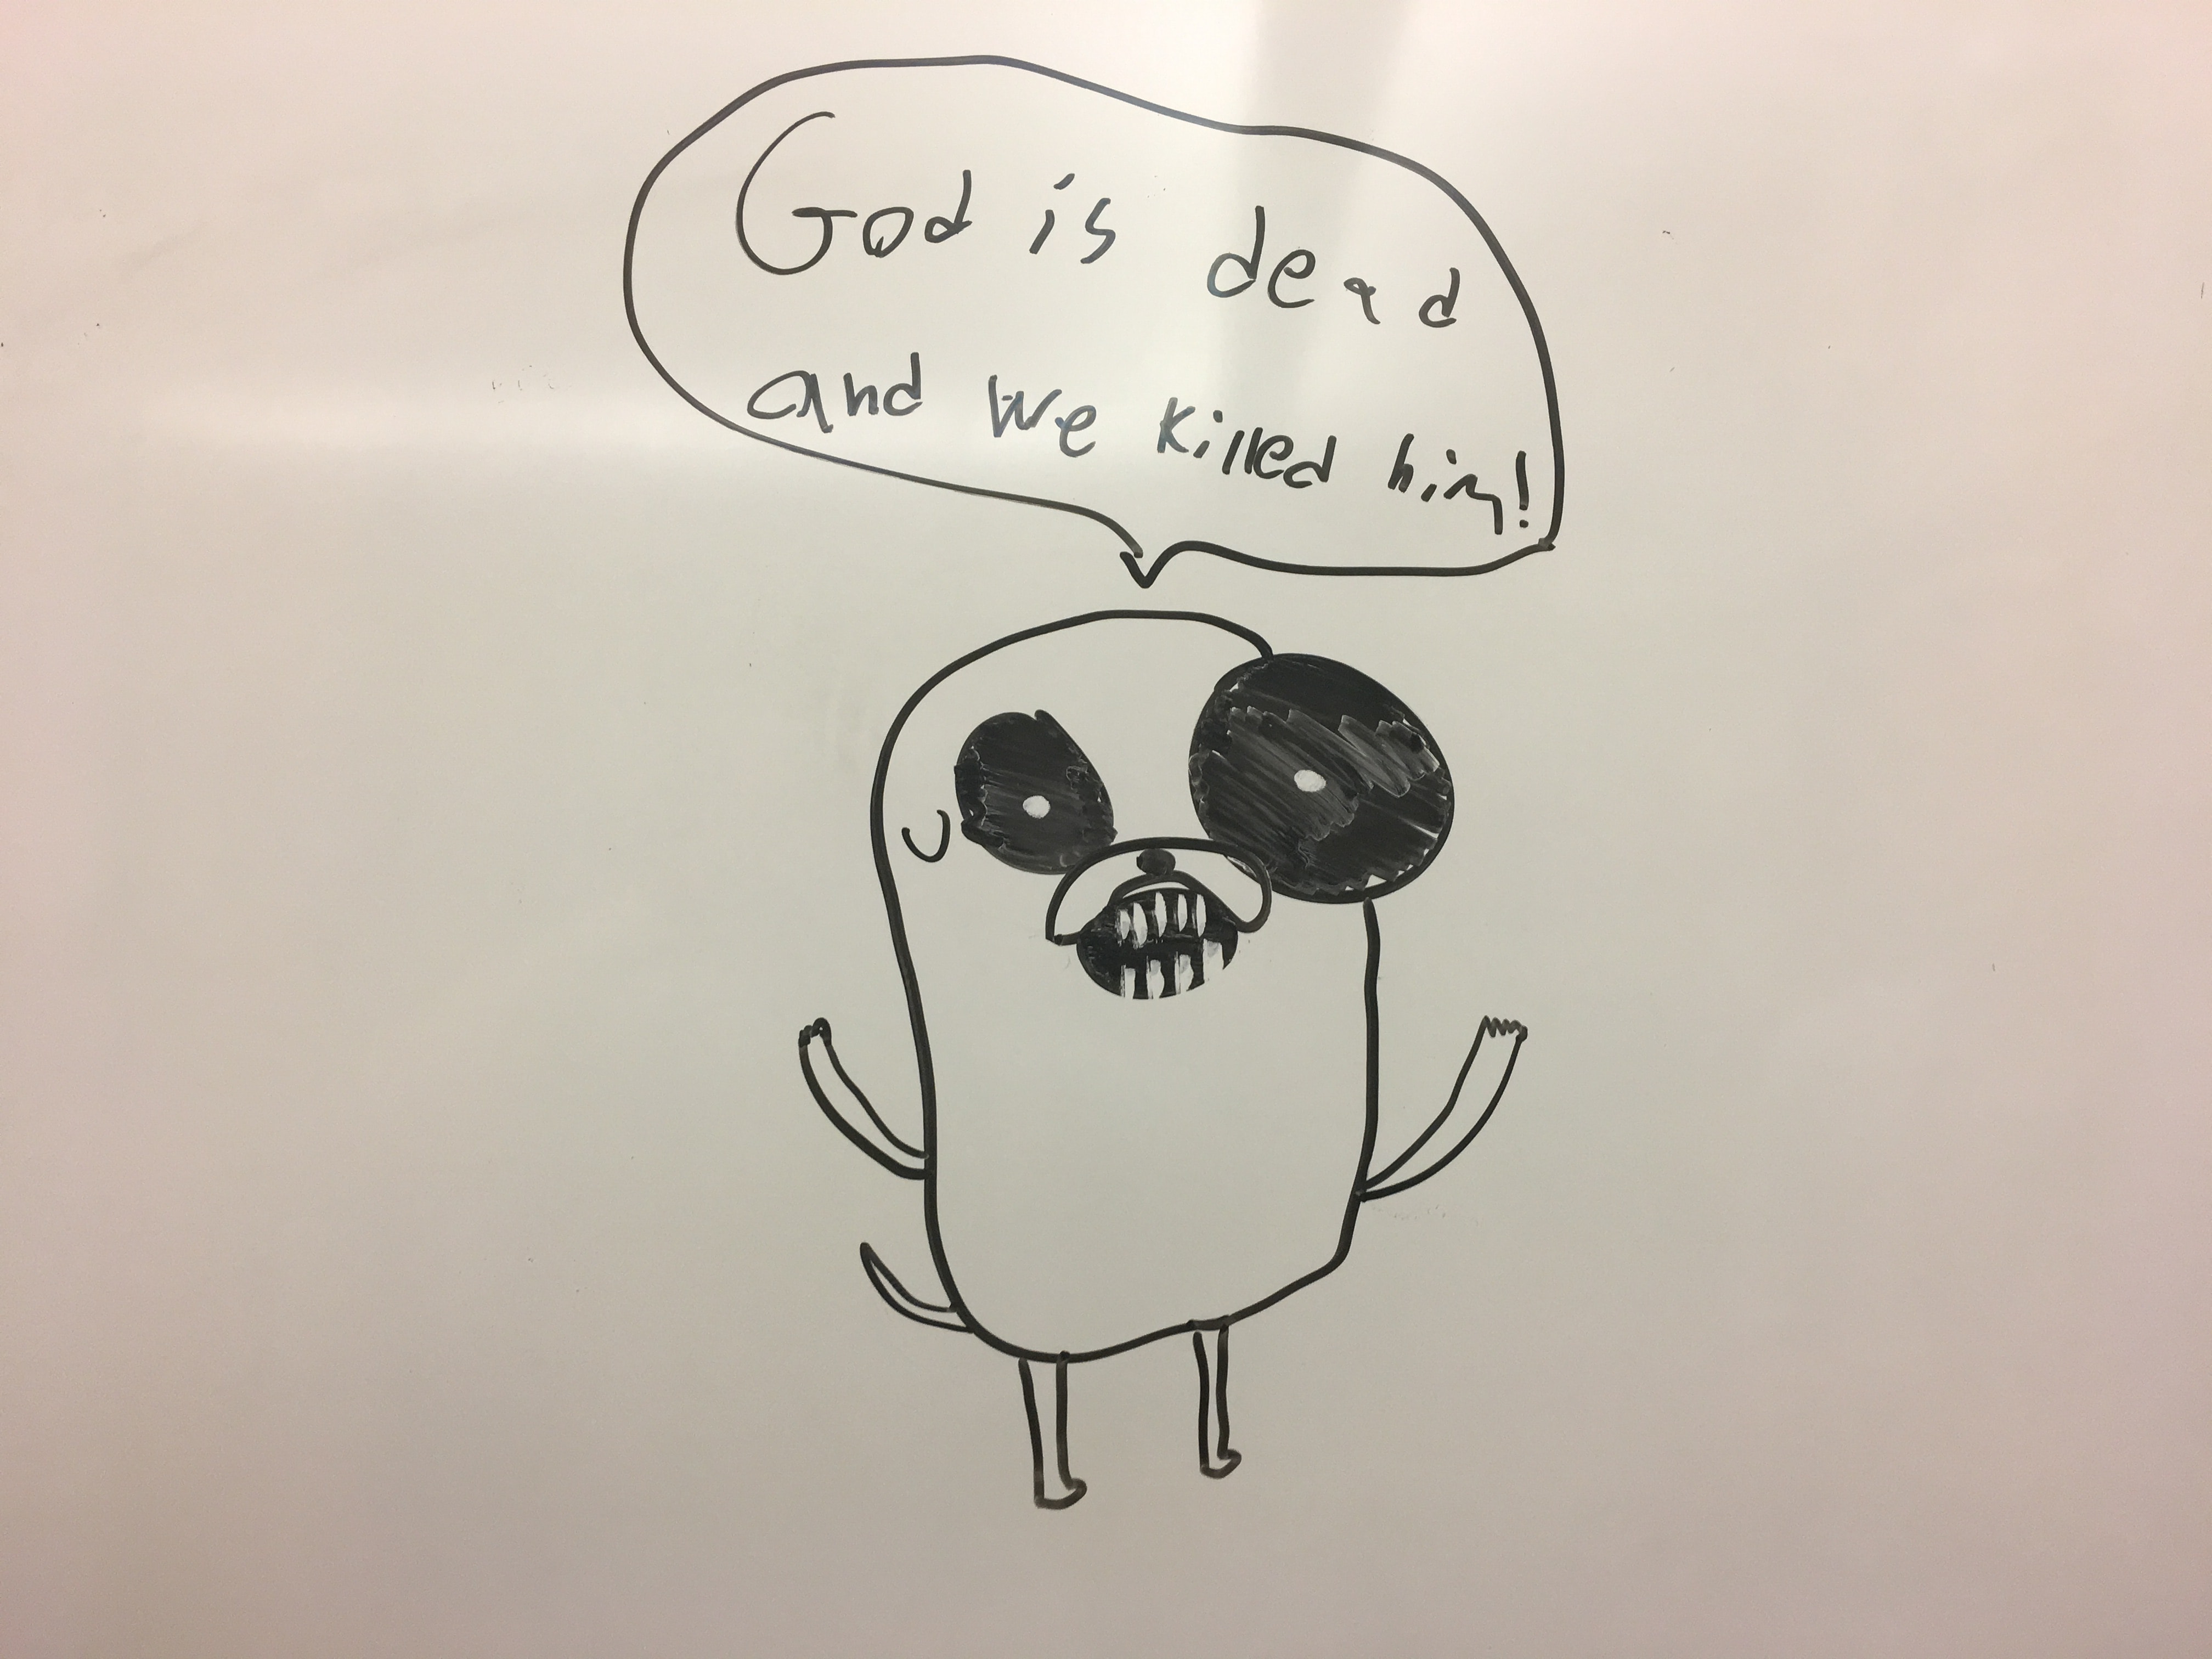 God is dead
and we killed him!